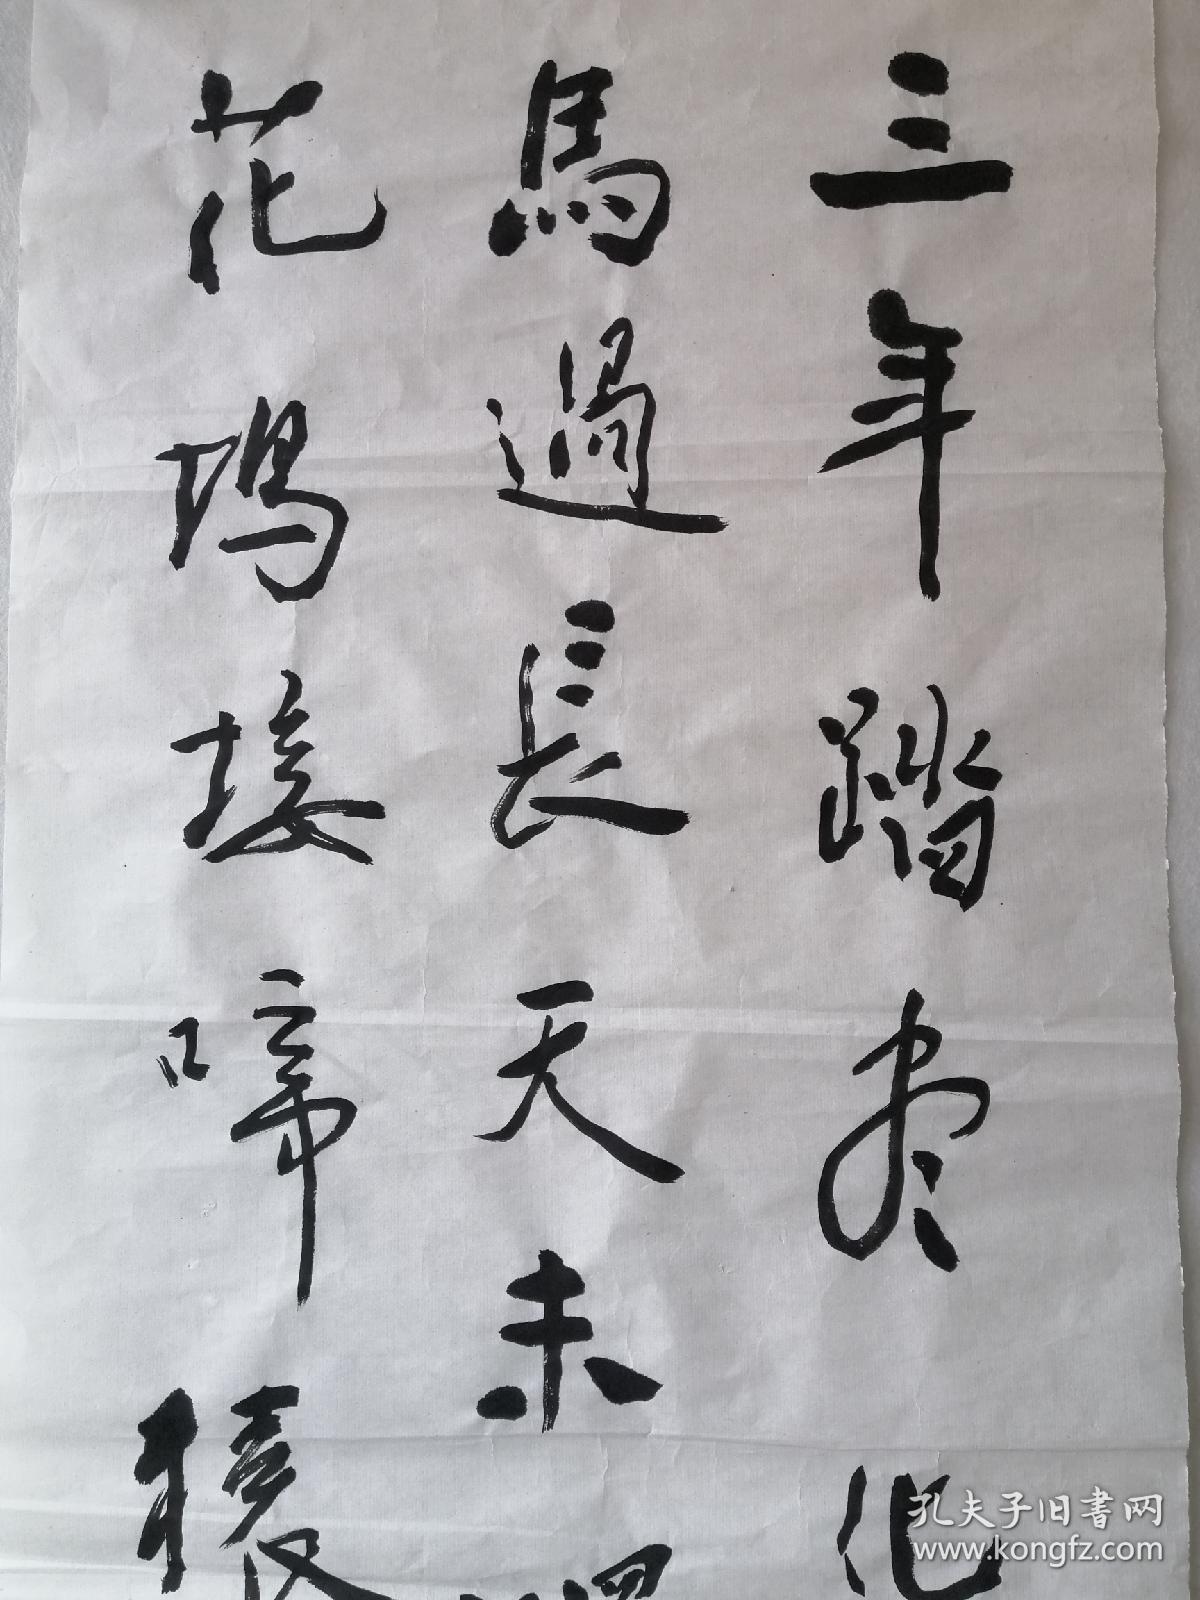 三年踏盡化
馬過長天未
花塢接啼猿
孔夫子旧书网
www.kongfz.com